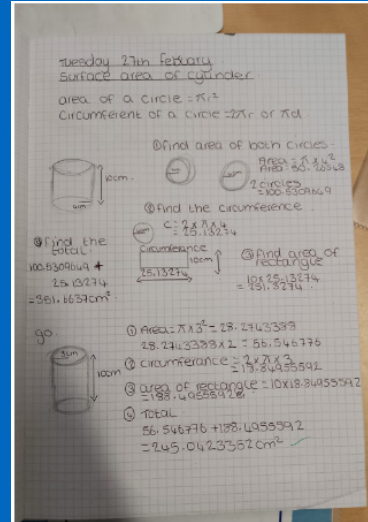 Tuesday 27th febuary
Surface area of cylinder.
area of a circle = πr²
Circumferent of a circle = 2πr or πd
① find area of both circles.
Area = π x 4²
Area = 50.26548
2 circles
= 100.5309649
10cm
4cm
② find the circumference
C = 2 x π x 4
= 25.13274
Circumferance
10cm
25.13274
③ find area of
rectangle
10 x 25.13274
= 251.3274
④ find the
total.
100.5309649 +
25.13274
= 351.6637cm²
go.
3cm
10cm
① Area = π x 3² = 28.2743339
28.2743339 x 2 = 56.546776
② circumferance = 2 x π x 3
= 18.84955592
③ area of rectangle = 10 x 18.84955592
= 188.4955592
④ Total
56.546776 + 188.4955592
= 245.0423352cm²